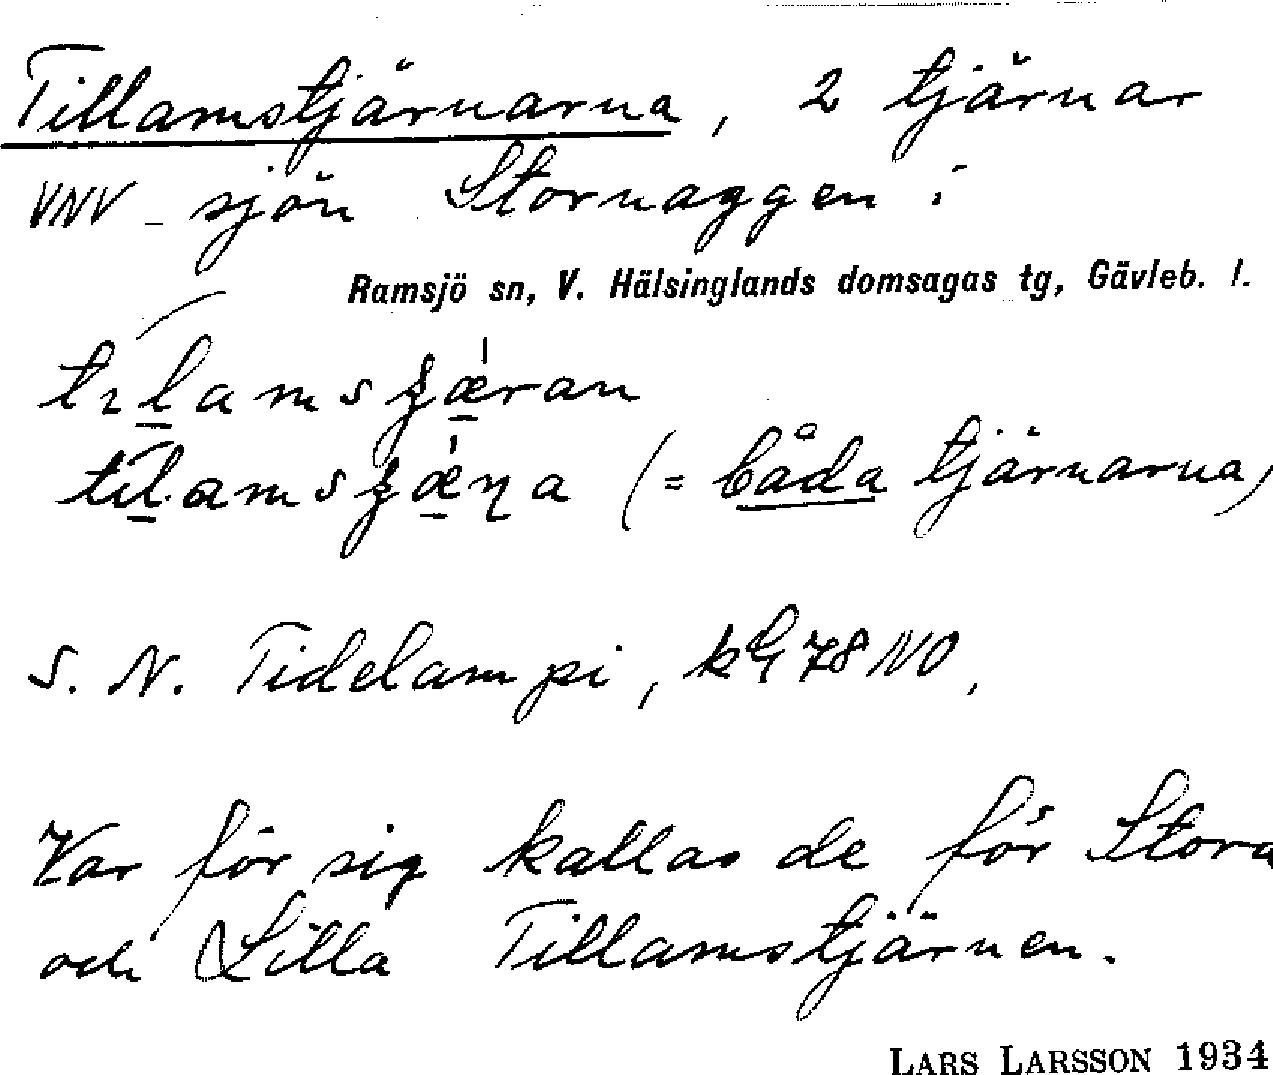 Tillamstjärnarna, 2 tjärnar
VNV _ sjön Stornaggen i
Ramsjö sn, V. Hälsinglands domsagas tg, Gävleb. l.
(= båda tjärnarna)
S. N. Tidelampi, kG 78 NO,
Var för sig kallas de för Stora
och Lilla Tillamstjärnen.
LARS LARSSON 1934